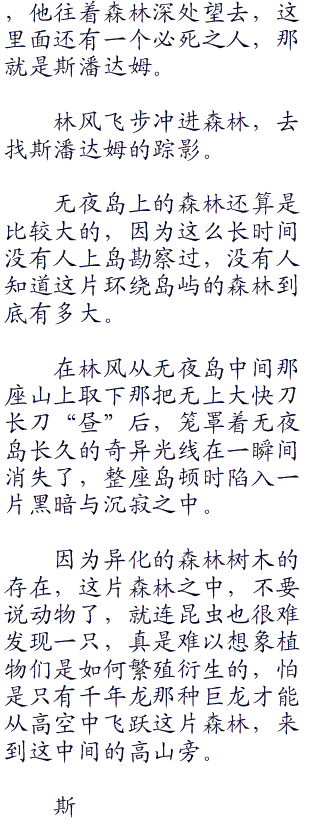 ，他往着森林深处望去，这
里面还有一个必死之人，那
就是斯潘达姆。
林风飞步冲进森林，去
找斯潘达姆的踪影。
无夜岛上的森林还算是
比较大的，因为这么长时间
没有人上岛勘察过，没有人
知道这片环绕岛屿的森林到
底有多大。
在林风从无夜岛中间那
座山上取下那把无上大快刀
长刀“昼”后，笼罩着无夜
岛长久的奇异光线在一瞬间
消失了，整座岛顿时陷入一
片黑暗与沉寂之中。
因为异化的森林树木的
存在，这片森林之中，不要
说动物了，就连昆虫也很难
发现一只，真是难以想象植
物们是如何繁殖衍生的，怕
是只有千年龙那种巨龙才能
从高空中飞跃这片森林，来
到这中间的高山旁。
斯